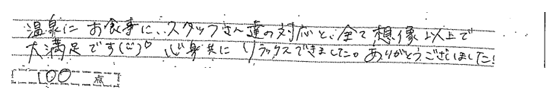 温泉に お食事に、スタッフさん達の対応と、全て想像以上で
大満足です(^^)♡ 心身共に リラックスできました。ありがとうございました!
100点